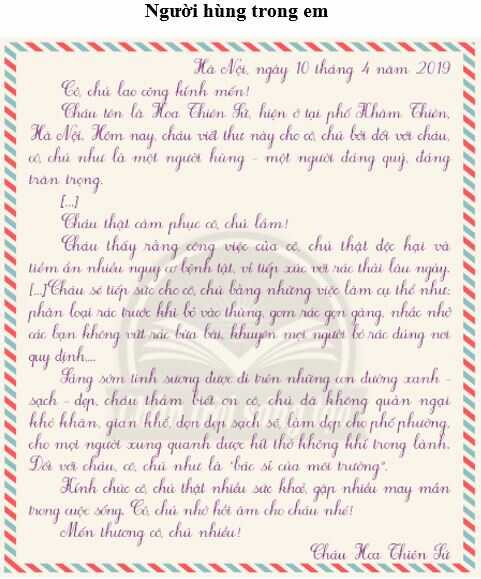 Người hùng trong em
Hà Nội, ngày 10 tháng 4 năm 2019
Cô, chú lao công kính mến!
Cháu tên là Hoa Thiên Sứ, hiện ở tại phố Khâm Thiên,
Hà Nội. Hôm nay, cháu viết thư này cho cô, chú bởi đối với cháu,
cô, chú như là một người hùng - một người đáng quý, đáng
trân trọng.
[...]
Cháu thật cảm phục cô, chú lắm!
Cháu thấy rằng công việc của cô, chú thật độc hại và
tiềm ẩn nhiều nguy cơ bệnh tật, vì tiếp xúc với rác thải lâu ngày.
[...] Cháu sẽ tiếp sức cho cô, chú bằng những việc làm cụ thể như:
phân loại rác trước khi bỏ vào thùng, gom rác gọn gàng, nhắc nhở
các bạn không vứt rác bừa bãi, khuyên mọi người bỏ rác đúng nơi
quy định,...
Sáng sớm tinh sương được đi trên những con đường xanh -
sạch - đẹp, cháu thầm biết ơn cô, chú đã không quản ngại
khó khăn, gian khổ, dọn dẹp sạch sẽ, làm đẹp cho phố phường,
cho mọi người xung quanh được hít thở không khí trong lành.
Đối với cháu, cô, chú như là "bác sĩ của môi trường".
Kính chúc cô, chú thật nhiều sức khoẻ, gặp nhiều may mắn
trong cuộc sống. Cô, chú nhớ hồi âm cho cháu nhé!
Mến thương cô, chú nhiều!
Cháu Hoa Thiên Sứ